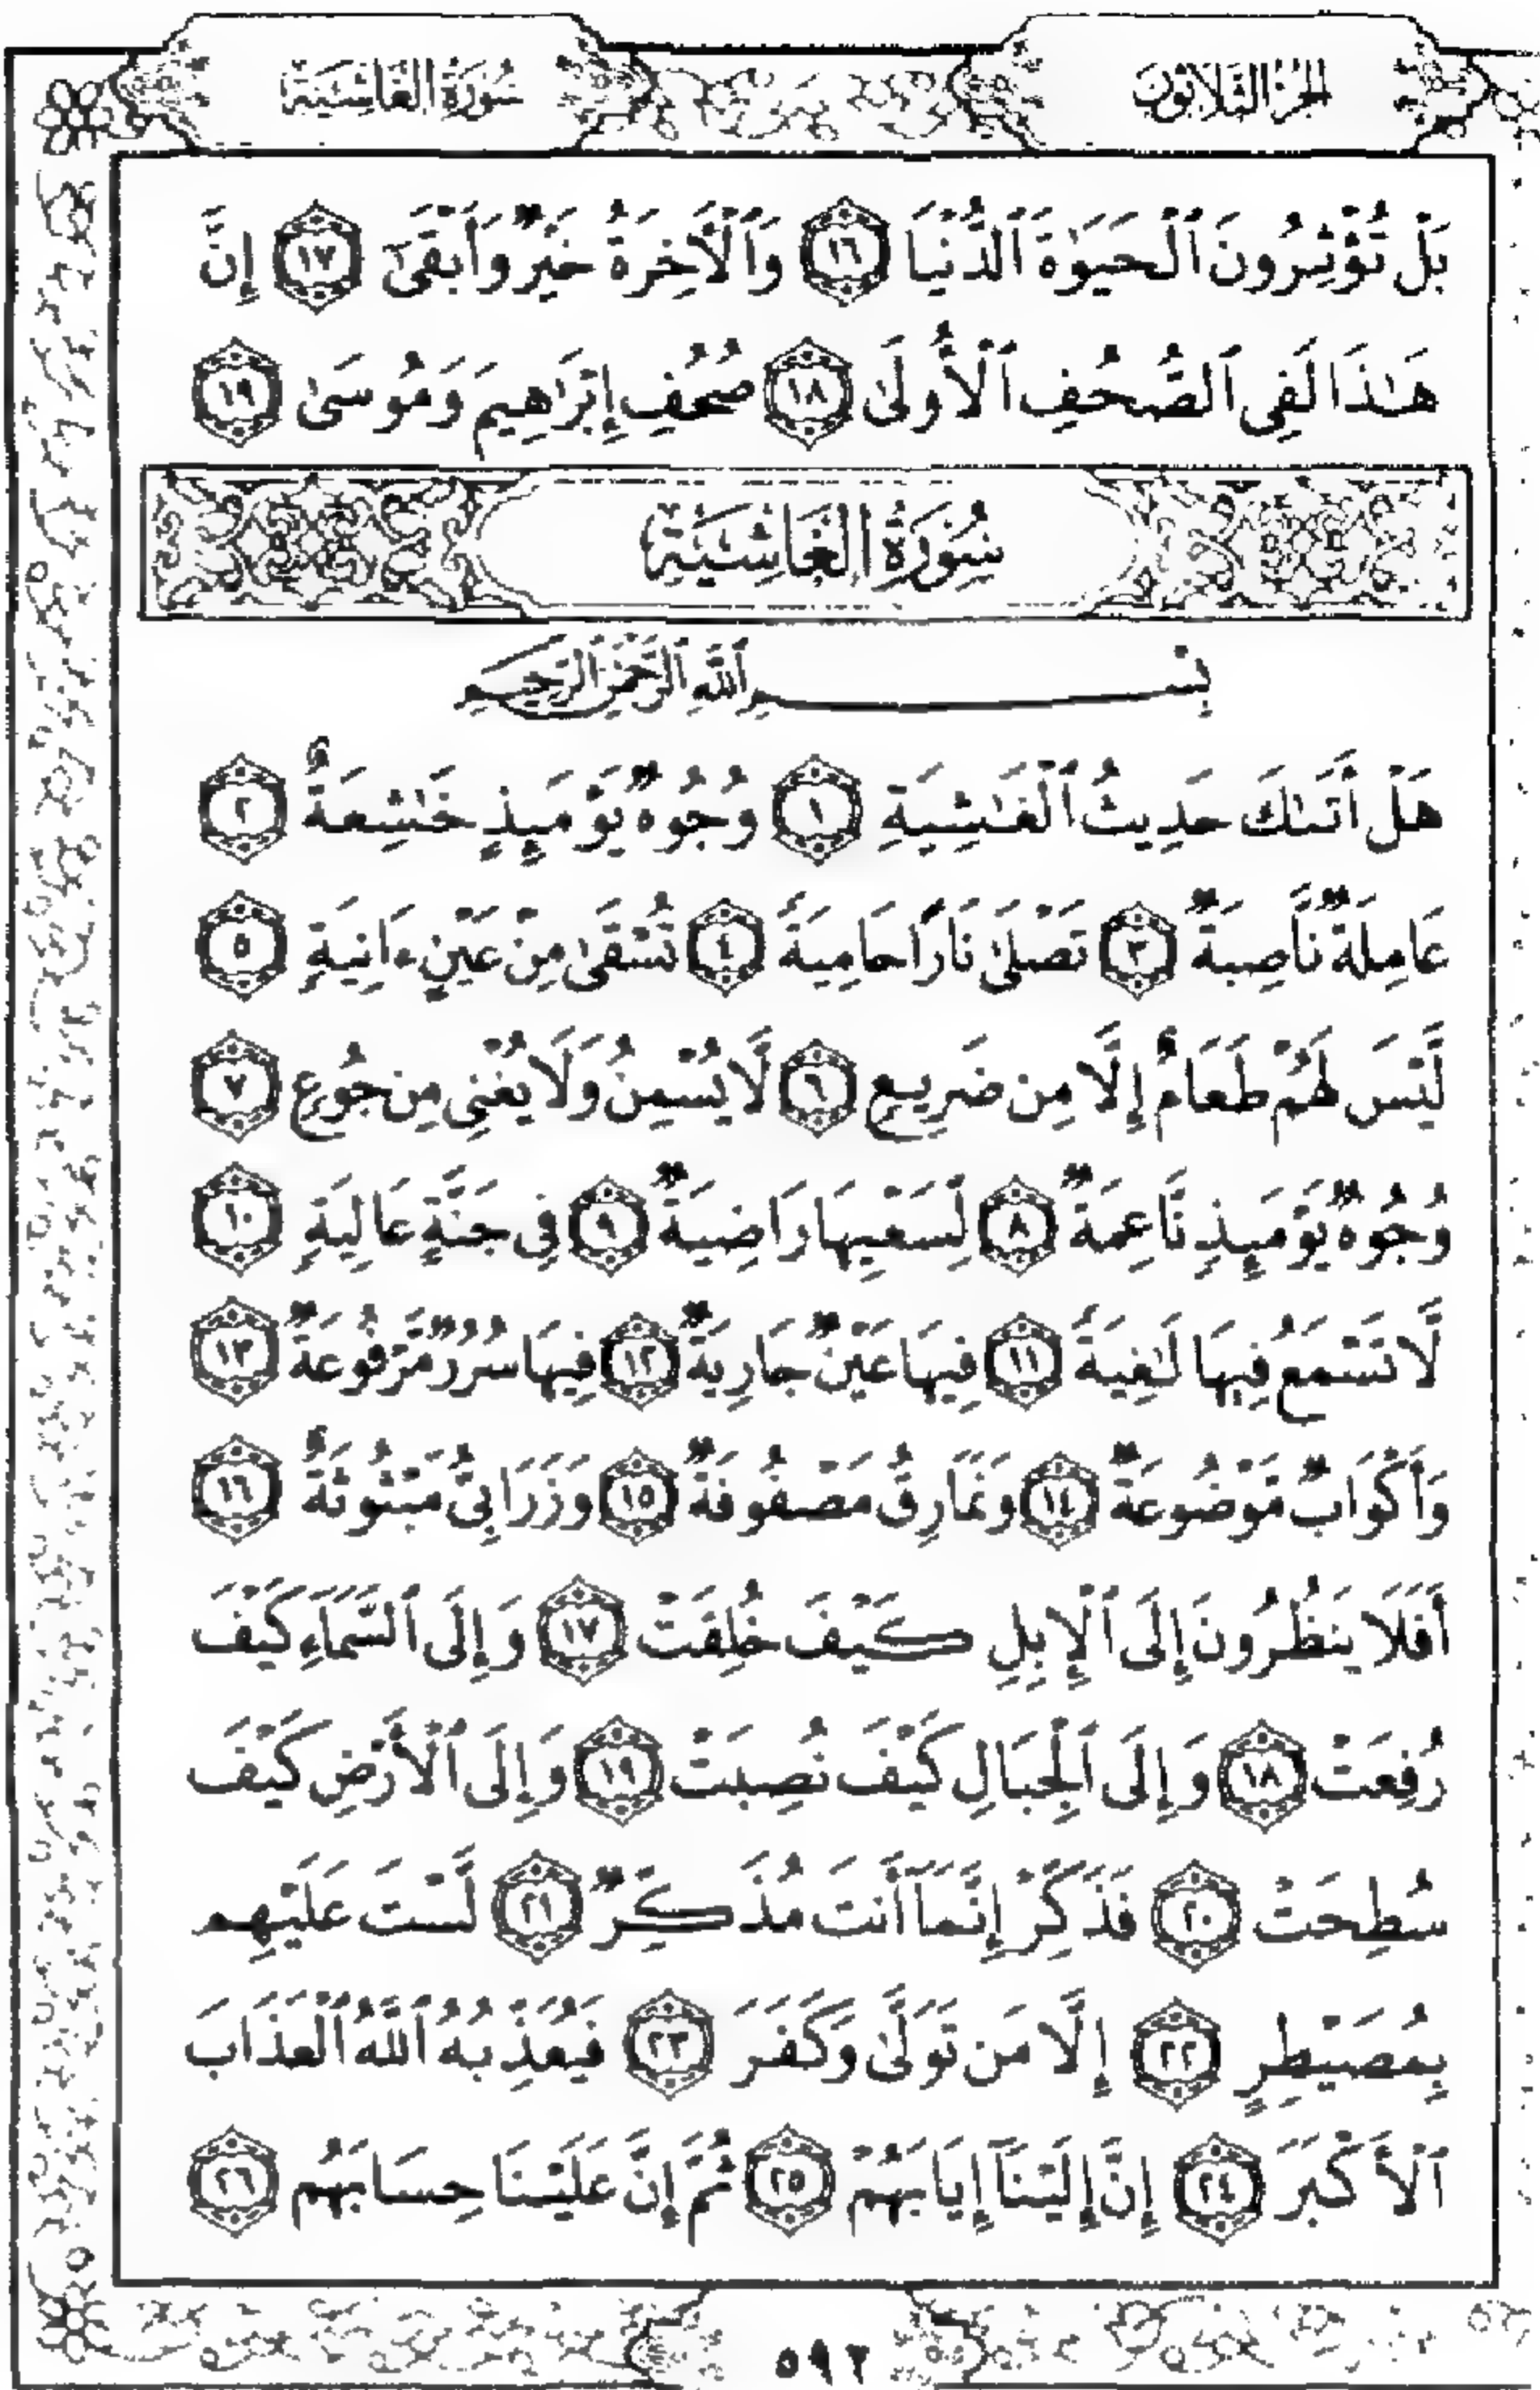 الجزء الثلاثون
سورة الغاشية
بَلْ تُؤْثِرُونَ ٱلْحَيَوٰةَ ٱلدُّنْيَا ١٦ وَٱلْأَخِرَةُ خَيْرٌ وَأَبْقَىٰٓ ١٧ إِنَّ
هَـٰذَا لَفِى ٱلصُّحُفِ ٱلْأُولَىٰ ١٨ صُحُفِ إِبْرَٰهِيمَ وَمُوسَىٰ ١٩
سُورَةُ الْغَاشِيَةِ
بِسْمِ ٱللَّهِ ٱلرَّحْمَٰنِ ٱلرَّحِيمِ
هَلْ أَتَىٰكَ حَدِيثُ ٱلْغَـٰشِيَةِ ١ وُجُوهٌ يَوْمَئِذٍ خَـٰشِعَةٌ ٢
عَامِلَةٌ نَّاصِبَةٌ ٣ تَصْلَىٰ نَارًا حَامِيَةً ٤ تُسْقَىٰ مِنْ عَيْنٍ ءَانِيَةٍ ٥
لَّيْسَ لَهُمْ طَعَامٌ إِلَّا مِن ضَرِيعٍ ٦ لَّا يُسْمِنُ وَلَا يُغْنِى مِن جُوعٍ ٧
وُجُوهٌ يَوْمَئِذٍ نَّاعِمَةٌ ٨ لِّسَعْيِهَا رَاضِيَةٌ ٩ فِى جَنَّةٍ عَالِيَةٍ ١٠
لَّا تَسْمَعُ فِيهَا لَـٰغِيَةً ١١ فِيهَا عَيْنٌ جَارِيَةٌ ١٢ فِيهَا سُرُرٌ مَّرْفُوعَةٌ ١٣
وَأَكْوَابٌ مَّوْضُوعَةٌ ١٤ وَنَمَارِقُ مَصْفُوفَةٌ ١٥ وَزَرَابِىُّ مَبْثُوثَةٌ ١٦
أَفَلَا يَنظُرُونَ إِلَى ٱلْإِبِلِ كَيْفَ خُلِقَتْ ١٧ وَإِلَى ٱلسَّمَآءِ كَيْفَ
رُفِعَتْ ١٨ وَإِلَى ٱلْجِبَالِ كَيْفَ نُصِبَتْ ١٩ وَإِلَى ٱلْأَرْضِ كَيْفَ
سُطِحَتْ ٢٠ فَذَكِّرْ إِنَّمَآ أَنتَ مُذَكِّرٌ ٢١ لَّسْتَ عَلَيْهِم
بِمُصَيْطِرٍ ٢٢ إِلَّا مَن تَوَلَّىٰ وَكَفَرَ ٢٣ فَيُعَذِّبُهُ ٱللَّهُ ٱلْعَذَابَ
ٱلْأَكْبَرَ ٢٤ إِنَّ إِلَيْنَآ إِيَابَهُمْ ٢٥ ثُمَّ إِنَّ عَلَيْنَا حِسَابَهُم ٢٦
٥٩٢